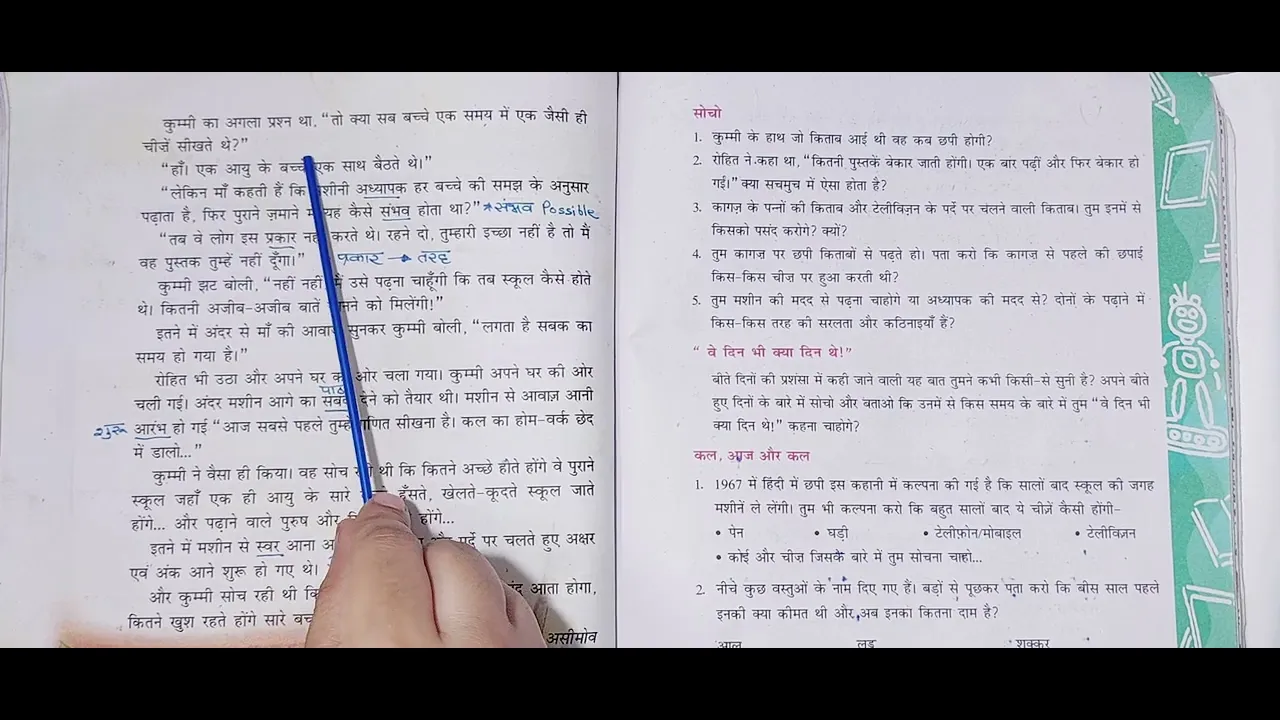 कुम्मी का अगला प्रश्न था, “तो क्या सब बच्चे एक समय में एक जैसी ही
चीज़ें सीखते थे?”
“हाँ। एक आयु के बच्चे एक साथ बैठते थे।”
“लेकिन माँ कहती हैं कि मशीनी अध्यापक हर बच्चे की समझ के अनुसार
पढ़ाता है, फिर पुराने ज़माने में यह कैसे संभव होता था?” *संभव Possible
“तब वे लोग इस प्रकार नहीं करते थे। रहने दो, तुम्हारी इच्छा नहीं है तो मैं
वह पुस्तक तुम्हें नहीं दूँगा।” प्रकार → तरह
कुम्मी झट बोली, “नहीं नहीं, मैं उसे पढ़ना चाहूँगी कि तब स्कूल कैसे होते
थे। कितनी अजीब-अजीब बातें जानने को मिलेंगी!”
इतने में अंदर से माँ की आवाज़ सुनकर कुम्मी बोली, “लगता है सबक का
समय हो गया है।”
रोहित भी उठा और अपने घर की ओर चला गया। कुम्मी अपने घर की ओर
पाठ
चली गई। अंदर मशीन आगे का सबक देने को तैयार थी। मशीन से आवाज़ आनी
शुरू आरंभ हो गई “आज सबसे पहले तुम्हें गणित सीखना है। कल का होम-वर्क छेद
में डालो...”
कुम्मी ने वैसा ही किया। वह सोच रही थी कि कितने अच्छे होते होंगे वे पुराने
स्कूल जहाँ एक ही आयु के सारे हँसते, खेलते-कूदते स्कूल जाते
होंगे... और पढ़ाने वाले पुरुष और होंगे...
इतने में मशीन से स्वर आना पर्दे पर चलते हुए अक्षर
एवं अंक आने शुरू हो गए थे।
और कुम्मी सोच रही थी कि आता होगा,
कितने खुश रहते होंगे सारे
असीमोव
सोचो
1. कुम्मी के हाथ जो किताब आई थी वह कब छपी होगी?
2. रोहित ने कहा था, “कितनी पुस्तकें बेकार जाती होंगी। एक बार पढ़ीं और फिर बेकार हो
गईं।” क्या सचमुच में ऐसा होता है?
3. कागज़ के पन्नों की किताब और टेलीविज़न के पर्दे पर चलने वाली किताब। तुम इनमें से
किसको पसंद करोगे? क्यों?
4. तुम कागज़ पर छपी किताबों से पढ़ते हो। पता करो कि कागज़ से पहले की छपाई
किस-किस चीज़ पर हुआ करती थी?
5. तुम मशीन की मदद से पढ़ना चाहोगे या अध्यापक की मदद से? दोनों के पढ़ाने में
किस-किस तरह की सरलता और कठिनाइयाँ हैं?
“ वे दिन भी क्या दिन थे!”
बीते दिनों की प्रशंसा में कही जाने वाली यह बात तुमने कभी किसी-से सुनी है? अपने बीते
हुए दिनों के बारे में सोचो और बताओ कि उनमें से किस समय के बारे में तुम “वे दिन भी
क्या दिन थे!” कहना चाहोगे?
कल, आज और कल
1. 1967 में हिंदी में छपी इस कहानी में कल्पना की गई है कि सालों बाद स्कूल की जगह
मशीनें ले लेंगी। तुम भी कल्पना करो कि बहुत सालों बाद ये चीज़ें कैसी होंगी–
• पेन • घड़ी • टेलीफ़ोन/मोबाइल • टेलीविज़न
• कोई और चीज़ जिसके बारे में तुम सोचना चाहो...
2. नीचे कुछ वस्तुओं के नाम दिए गए हैं। बड़ों से पूछकर पता करो कि बीस साल पहले
इनकी क्या कीमत थी और अब इनका कितना दाम है?
आलू लड्डू शक्कर